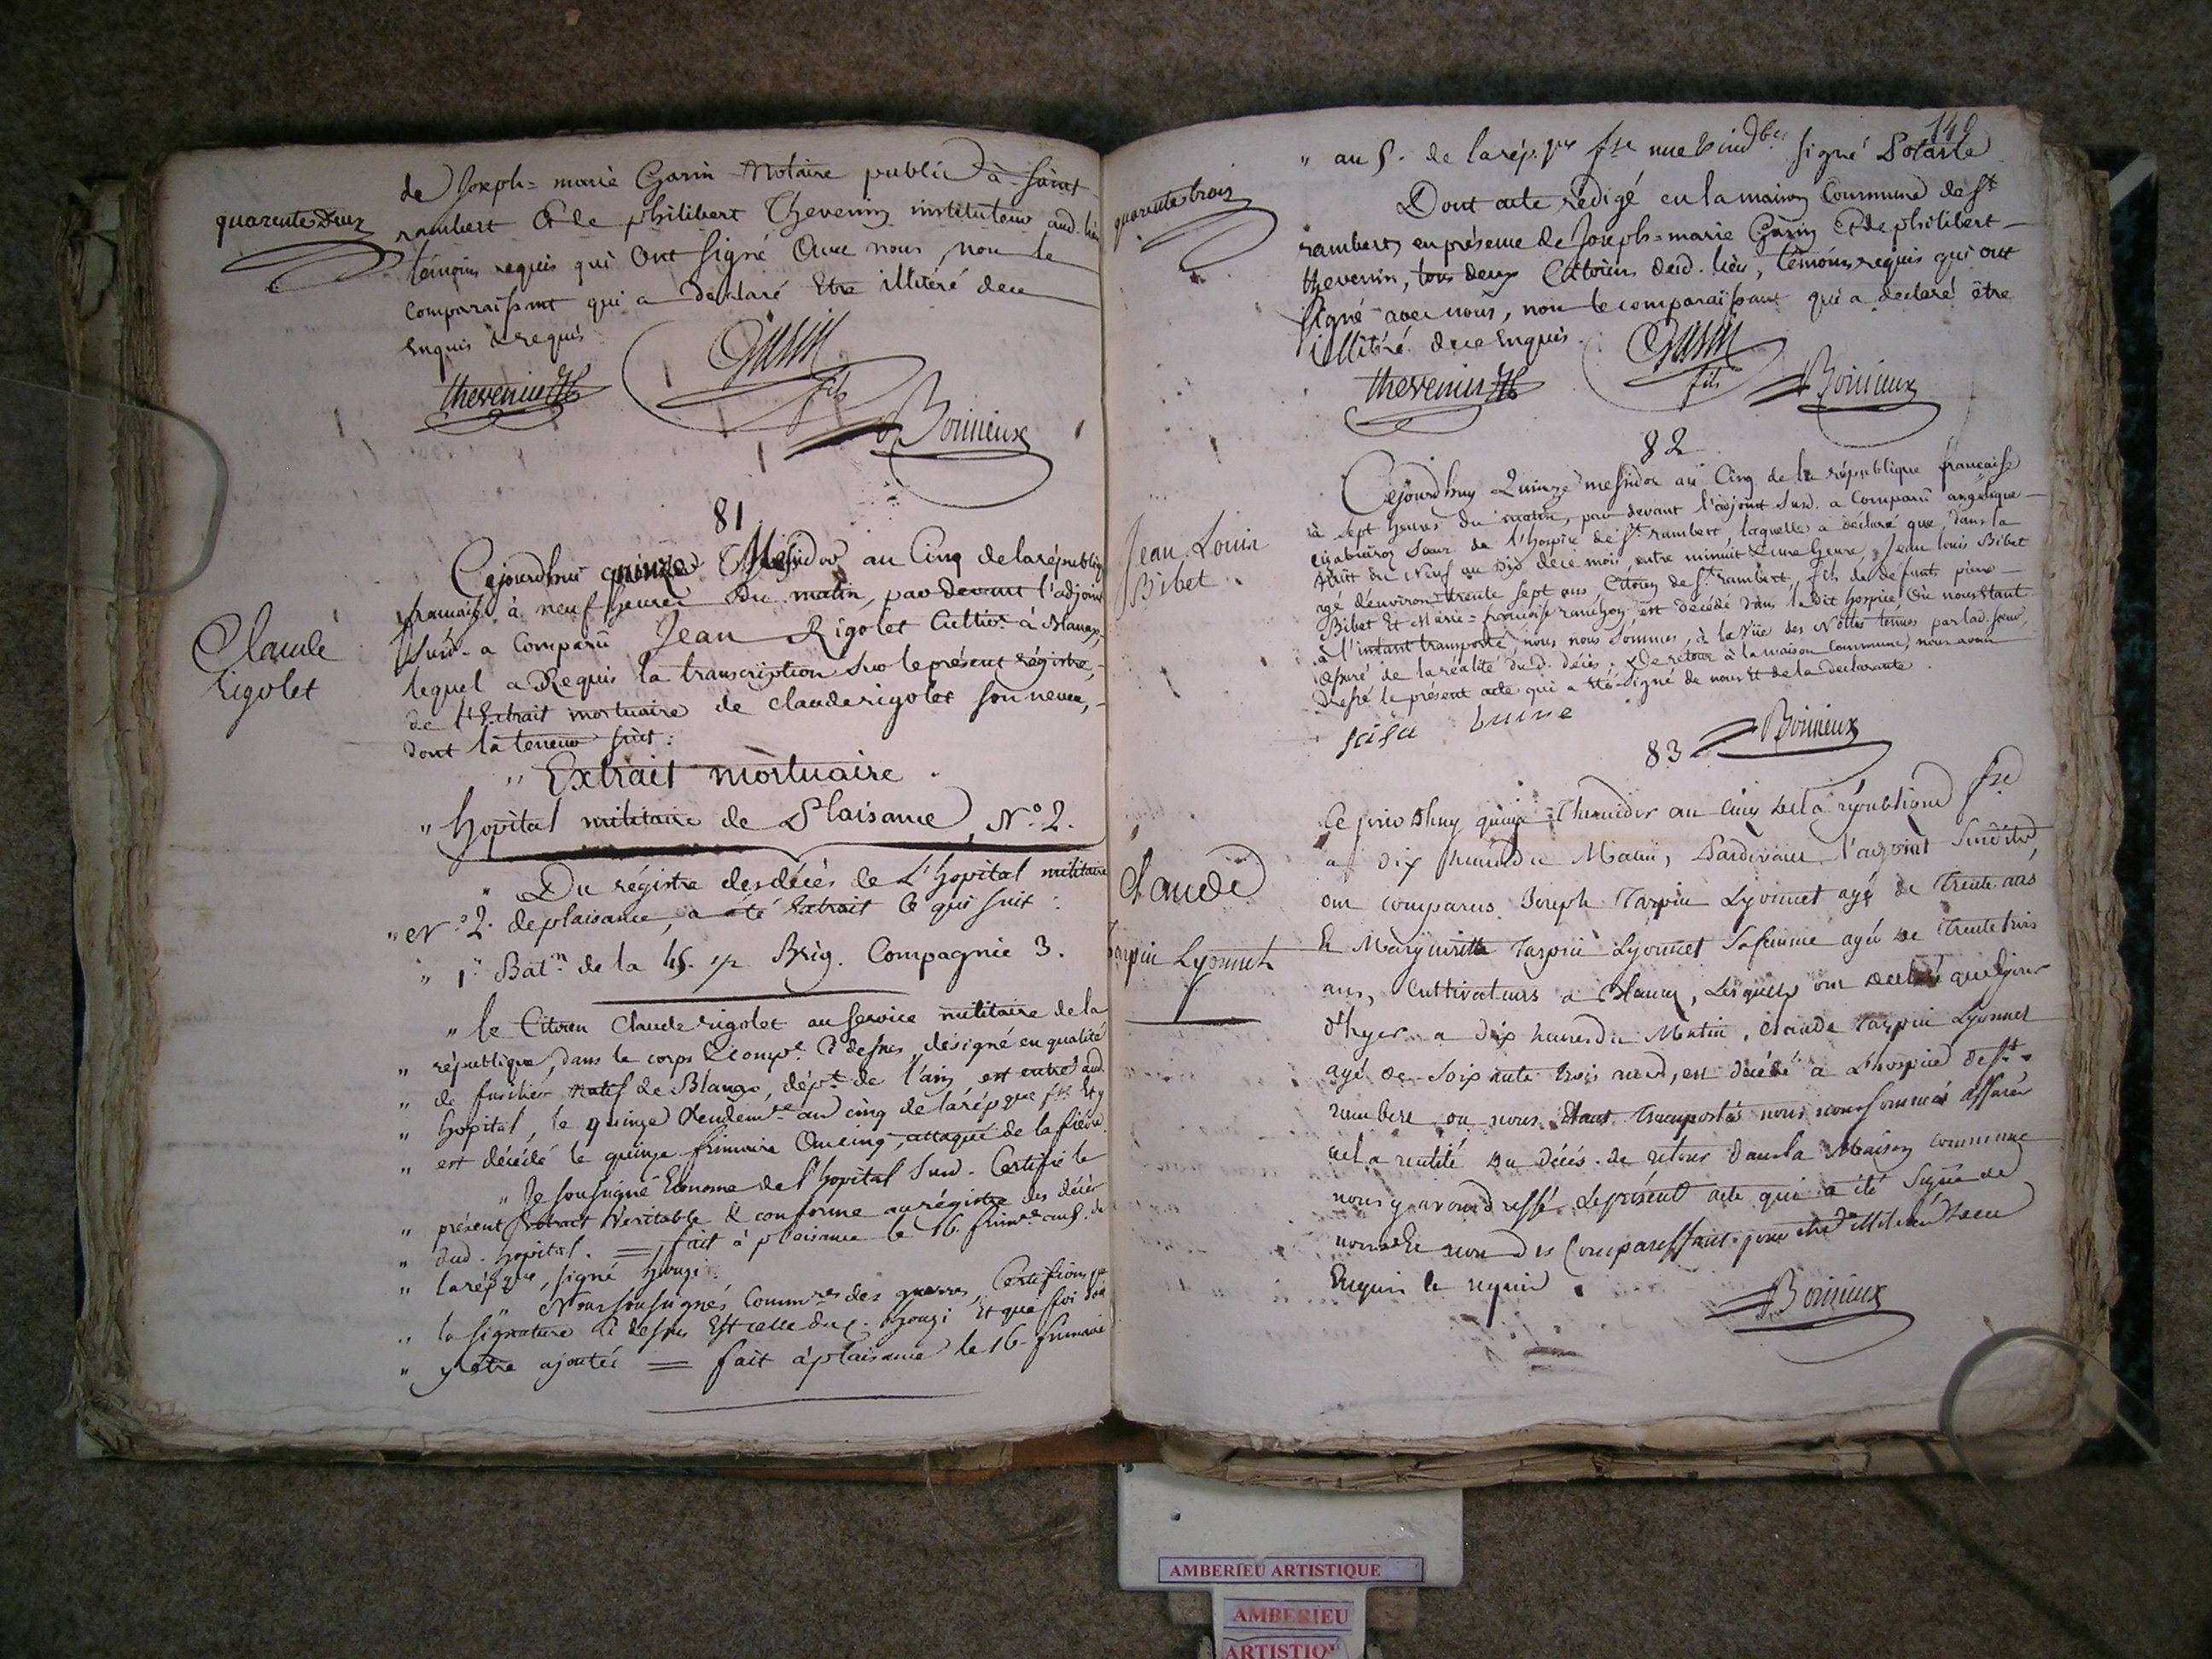 quarente deux
de Joseph=marie Garin Notaire public à saint
rambert Et de philibert Thevenin instituteur aud. lieu
témoins requis qui Ont signé Avec nous, non le
comparaissant qui a déclaré Etre illitéré de ce
Enquis & requis
Garin
fils
thevenin
Boinieux
81
Claude
rigolet
Cejourdhui quinze Messidor an Cinq de la républiq
francaise à neuf heures du matin, par devant l'adjoint
Sud. a Comparû Jean Rigolet Cultivr. à Blanaz,
lequel a Requis la transcription sur le présent régistre,
de l'Extrait mortuaire de claude rigolet son neveu,
dont la teneur suit :
" Extrait mortuaire .
" hopital militaire de Plaisance, N.° 2.
" Du régistre des décès de L'hopital militaire
" N.° 2. de plaisance, a été Extrait Ce qui suit :
" 1.er Bat.n de la 45. 1/2 Brig. Compagnie 3.
" le Citoien Claude rigolet au service militaire de la
" république, dans le corps & comp.e Ci dessus désigné en qualité
" de fusilier Natif de Blanaz, dép.t de l'ain, est entré aud.
" hopital, le quinze Vendem.re an cinq de la rép.que f.se Et y
" est décédé le quinze frimaire An cinq, attaqué de la fièvre.
" Je soussigné Econome de l'hopital Susd. Certifie le
" présent Extrait Véritable & conforme au régistre des décès
" dud. hopital. = fait à plaisance le 16. frim.re an 5. de
" la rép.que, signé hougi.
" Nous soussignés Comm.res des guerres, Certifions que
" la signature Ci dessus Est celle du C. hougi Et que foi doit
" y être ajoutée = fait à plaisance le 16. frimaire
140
quarente trois
" an 5. de la rép.que f.se une & ind.ble signé
Dont acte rédigé en la maison Commune de S.t
rambert, en présence de Joseph=marie Garin Et de philibert
thevenin, tous deux Citoiens dud. lieu, témoins requis qui ont
signé avec nous, non le comparaissant qui a declaré être
illitéré de ce enquis.
Garin
fils
thevenin
Boinieux
82
Jean Louis
Bibet
Cejourdhuy Quinze messidor an Cinq de la république francaise
à sept heures du matin, par devant l'adjoint Susd. a Comparû angélique
soeur de l'hospice de S.t rambert, laquelle a déclaré que, dans la
nuit du Neuf au Dix de ce mois, entre minuit & une heure, Jean louis Bibet
agé d'environ trente sept ans Citoien de S.t rambert, fils de défunts pierre
Bibet Et Marie=francoise est décédé dans le dit hospice Où nous étant
à l'instant transporté, nous nous Sommes, à la Vüe des Nottes tenues par lad. soeur,
assuré de la réalité dud. décès. De retour à la maison Commune, nous avons
dressé le présent acte qui a été signé de nous Et de la declarante.
Boinieux
83
Claude
Tarpin Lyonnet
Ce jourdhuy quinze Thermidor an Cinq de la république f.se
a dix heures du Matin, Pardevant l'adjoint Susdit,
ont comparus Joseph Tarpin Lyonnet agé de trente ans
Et Margueritte Tarpin Lyonnet Sa femme agée de trente trois
ans, Cultivateurs a Blanaz, Lesquels ont declaré que le jour
d'hyer a dix heures du Matin, Claude Tarpin Lyonnet
agé de Soixante trois ans, est décédé a L'hospice de S.t
rambert ou nous étant transportés nous nous sommes assurés
de la réalité du décès. de retour dans la Maison commune
nous y avons dressé Le présent acte qui a été Signé de
nous Et non des Comparaissants pour être illitérés de ce
Enquis & requis.
Boinieux
AMBERIEU ARTISTIQUE
AMBERIEU
ARTISTIQU